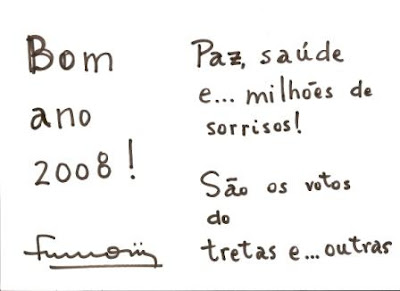 Bom
ano
2008!
Paz, saúde
e... milhões de
sorrisos!
São os votos
do
tretas e... outras